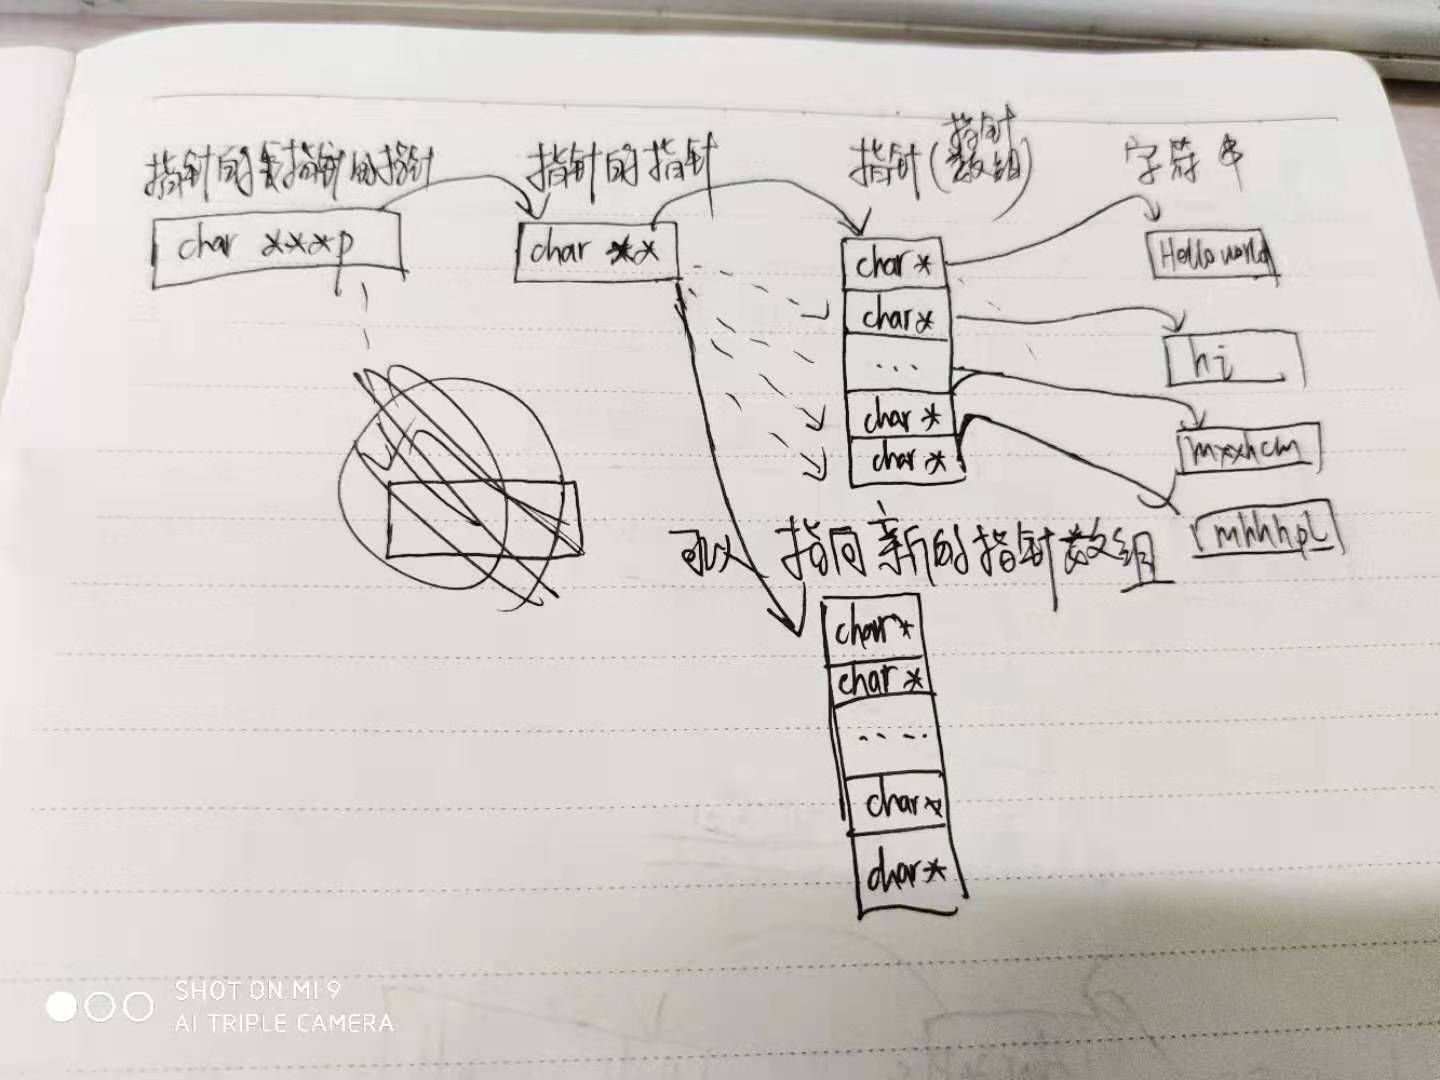 指针的指针的指针
指针的指针
指针(指针数组)
字符串
char ***p
char **
char *
char *
...
char *
char *
Hello world
hi
mxxhcm
mhhhpl
可以 指向新的指针数组
char *
char *
....
char *
char *
SHOT ON MI 9
AI TRIPLE CAMERA